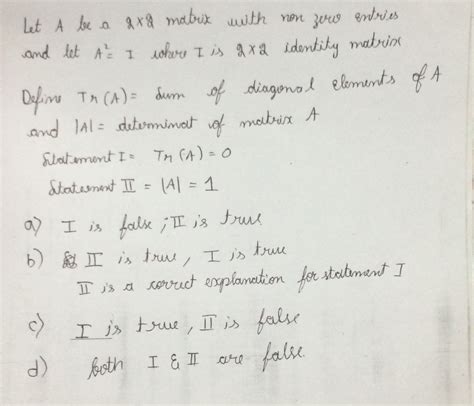 Let A be a 2x2 matrix with non zero entries
and let A² = I where I is 2x2 identity matrix
Define Tr(A) = Sum of diagonal elements of A
and |A| = determinat of matrix A
Statement I = Tr(A) = 0
Statement II = |A| = 1
a) I is false ; II is true
b) II is true, I is true
II is a correct explanation for statement I
c) I is true, II is false
d) both I & II are false.